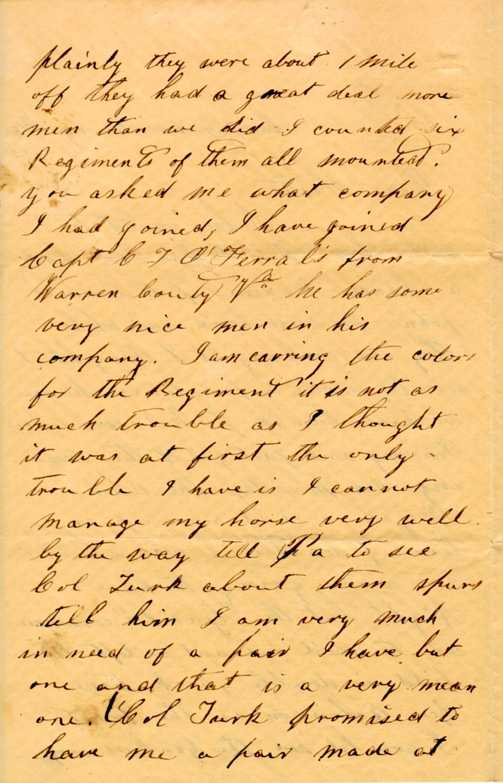 plainly they were about 1 mile
off they had a great deal more
men than we did I counted six
Regiments of them all mounted.
you asked me what company
I had goined, I have goined
Capt C T O'Ferral's from
Warren County Va he has some
very nice men in his
company. I am carring the colors
for the Regiment it is not as
much trouble as I thought
it was at first the only
trouble I have is I cannot
manage my horse very well.
by the way tell Pa to see
Col Turk about them spurs
tell him I am very much
in need of a pair I have but
one and that is a very mean
one. Col Turk promised to
have me a pair made at